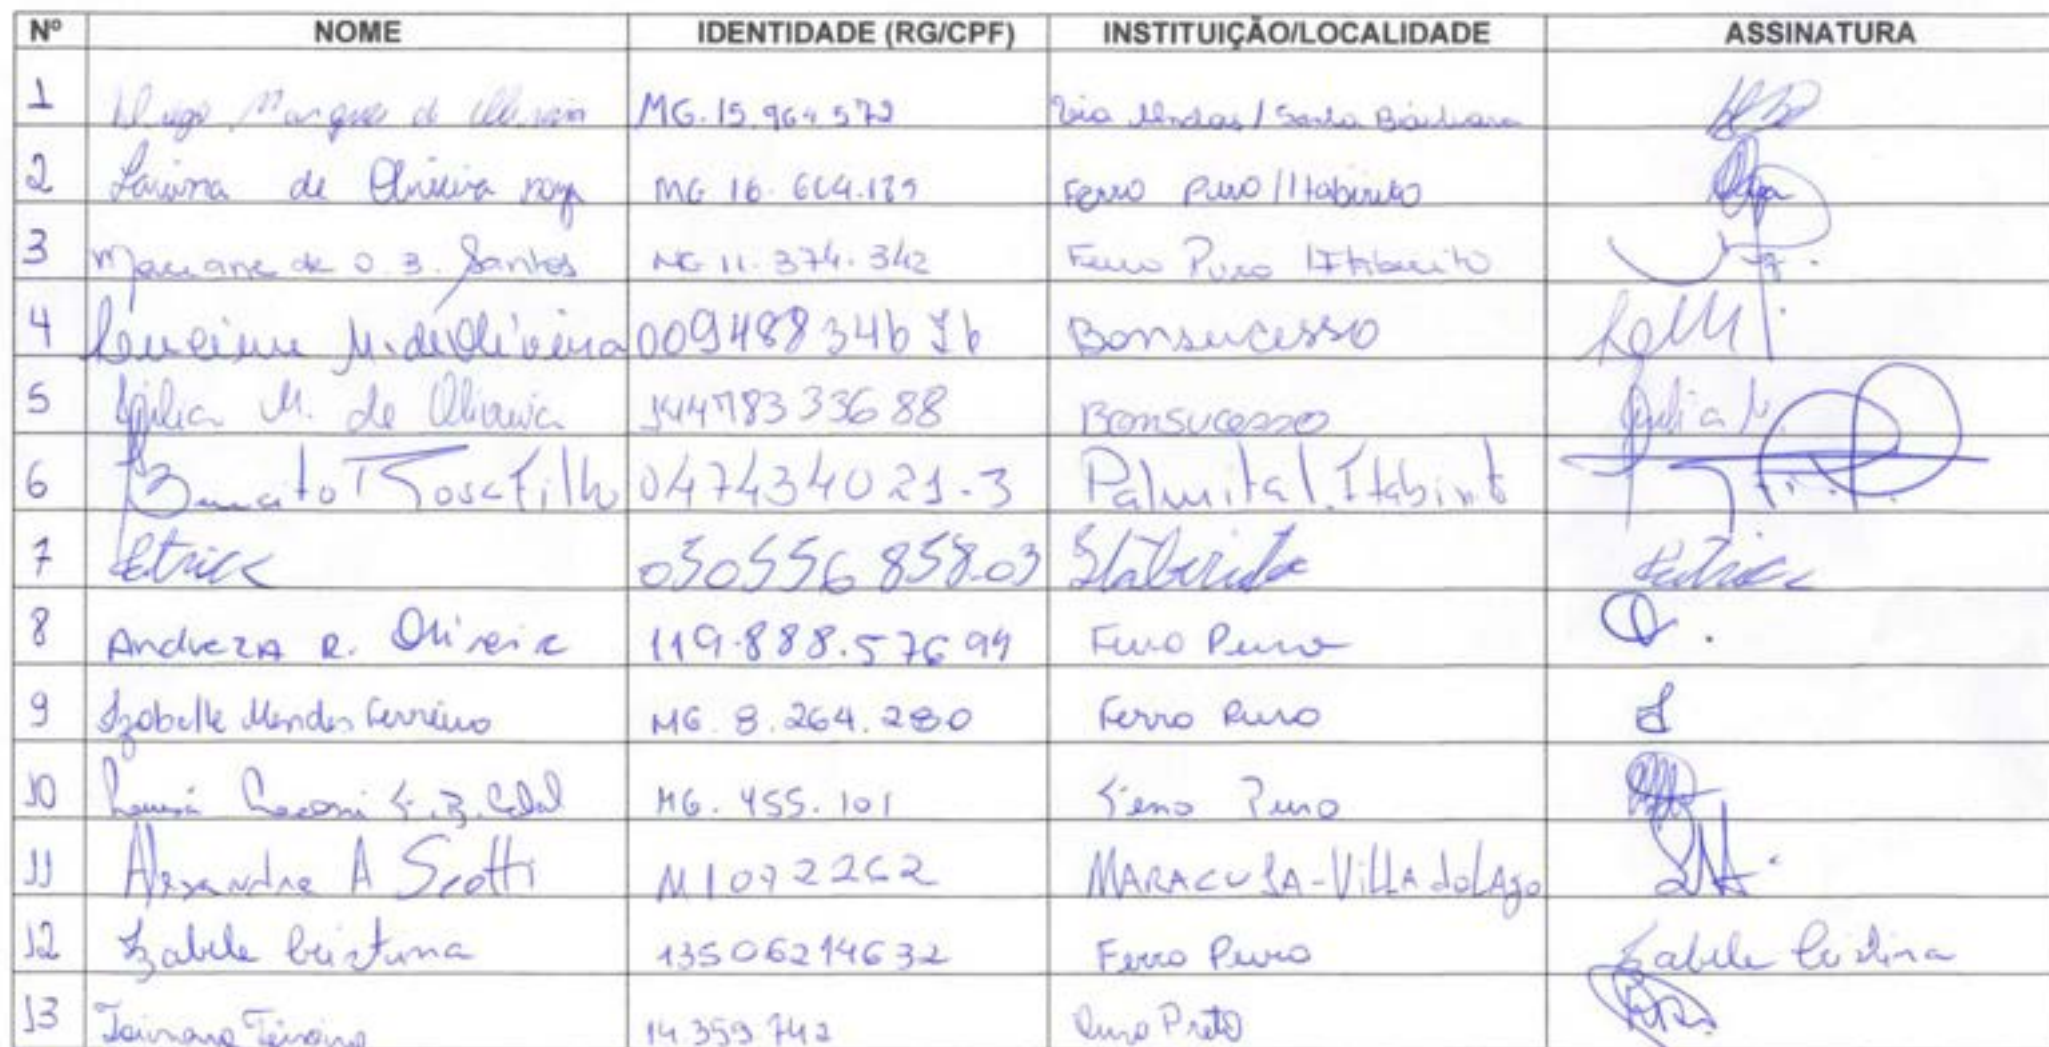 Nº NOME IDENTIDADE (RG/CPF) INSTITUIÇÃO/LOCALIDADE ASSINATURA
1 Hugo Marques de Oliveira MG.15.964.572 Via Lindas / Santa Bárbara
2 de Oliveira MG 16.664.189 Ferro Puro / Itabirito
3 de O. B. Santos MG 11.374.342 Ferro Puro / Itabirito
4 M. de Oliveira 00948834676 Bonsucesso
5 Júlia M. de Oliveira 14478333688 Bonsucesso Julia M.
6 Filho 047434021-3 Palmital. Itabirito
7 Patrick 050556858-03 Itabirito Patrick
8 Andreza R. Oliveira 119.888.576 94 Ferro Puro
9 Izabelle Mendes Ferreira MG. 8.264.280 Ferro Puro
10 MG. 455.101 Ferro Puro
11 Alexandre A Scotti M1092262 MARACUJA-VILLA do LAgo
12 Izabele Cristina 13506294632 Ferro Puro Izabele Cristina
13 Tainara Teixeira 14.359.742 Ouro Preto